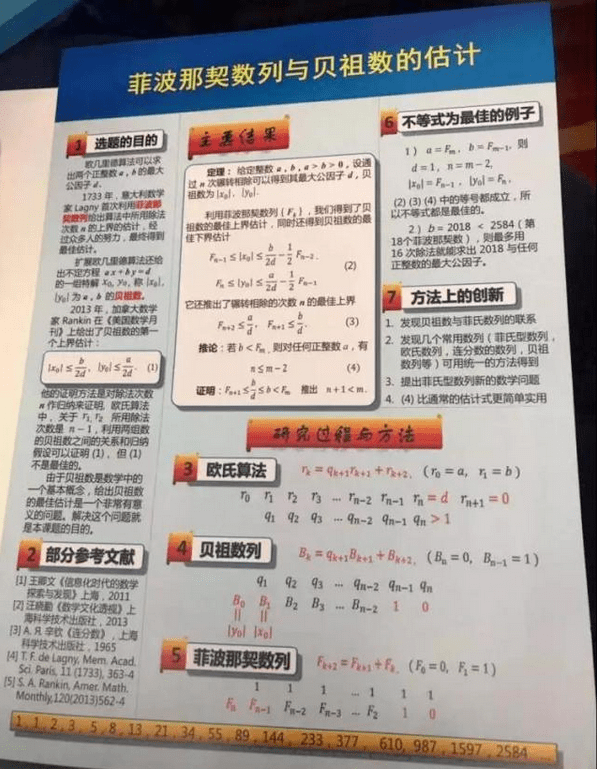 菲波那契数列与贝祖数的估计
1 选题的目的
欧几里德算法可以求
出两个正整数 a, b 的最大
公因子 d.
1733 年，意大利数学
家 Lagny 首次利用菲波那
契数列给出算法中所用除法
次数 n 的上界的估计，经
过众多人的努力，最终得到
最佳估计。
扩展欧几里德算法还给
出不定方程 ax + by = d
的一组特解 x₀, y₀, 称 |x₀|,
|y₀| 为 a, b 的贝祖数。
2013 年，加拿大数学
家 Rankin 在《美国数学月
刊》上给出了贝祖数的第一
个上界估计：
|x₀| ≤ b/2d, |y₀| ≤ a/2d. (1)
他的证明方法是对除法次数
n 作归纳来证明, 欧氏算法
中，关于 r₁, r₂ 所用除法
次数是 n − 1, 利用两组数
的贝祖数之间的关系和归纳
假设可以证明 (1)、但 (1)
不是最佳的。
由于贝祖数是数学中的
一个基本概念，给出贝祖数
的最佳估计是一个非常有意
义的问题。解决这个问题就
是本课题的目的。
2 部分参考文献
[1] 王卿文《信息化时代的数学
探索与发现》上海，2011
[2] 汪晓勤《数学文化透视》上
海科学技术出版社，2013
[3] А. Я. 辛钦《连分数》, 上海
科学技术出版社，1965
[4] T. F. de Lagny, Mem. Acad.
Sci. Paris, 11 (1733), 363-4
[5] S. A. Rankin, Amer. Math.
Monthly,120(2013)562-4
主要结果
定理：给定整数 a, b, a > b > 0, 设通
过 n 次辗转相除可以得到其最大公因子 d, 贝
祖数为 |x₀|, |y₀|.
利用菲波那契数列 {Fₖ}, 我们得到了贝
祖数的最佳上界估计，同时还得到贝祖数的最
佳下界估计
Fₙ₋₁ ≤ |x₀| ≤ b/2d − 1/2 Fₙ₋₂.
(2)
Fₙ ≤ |y₀| ≤ a/2d − 1/2 Fₙ₋₁
它还推出了辗转相除的次数 n 的最佳上界
Fₙ₊₂ ≤ a/d, Fₙ₊₁ ≤ b/d. (3)
推论：若 b < Fₘ, 则对任何正整数 a, 有
n ≤ m − 2 (4)
证明：Fₙ₊₁ ≤ b/d ≤ b < Fₘ 推出 n + 1 < m.
6 不等式为最佳的例子
1）a = Fₘ, b = Fₘ₋₁, 则
d = 1, n = m − 2,
|x₀| = Fₙ₋₁, |y₀| = Fₙ,
(2) (3) (4) 中的等号都成立，所
以不等式都是最佳的。
2）b = 2018 < 2584（第
18个菲波那契数），则最多用
16 次除法就能求出 2018 与任何
正整数的最大公因子。
7 方法上的创新
1. 发现贝祖数与菲氏数列的联系
2. 发现几个常用数列（菲氏型数列，
欧氏数列，连分数的数列，贝祖
数列等）可用统一的方法得到
3. 提出菲氏型数列新的数学问题
4. (4) 比通常的估计式更简单实用
研究过程与方法
3 欧氏算法 rₖ = qₖ₊₁rₖ₊₁ + rₖ₊₂, (r₀ = a, r₁ = b)
r₀ r₁ r₂ r₃ ... rₙ₋₂ rₙ₋₁ rₙ = d rₙ₊₁ = 0
q₁ q₂ q₃ ... qₙ₋₂ qₙ₋₁ qₙ > 1
4 贝祖数列 Bₖ = qₖ₊₁Bₖ₊₁ + Bₖ₊₂, (Bₙ = 0, Bₙ₋₁ = 1)
q₁ q₂ q₃ ... qₙ₋₂ qₙ₋₁ qₙ
B₀ B₁ B₂ B₃ ... Bₙ₋₂ 1 0
|| ||
|y₀| |x₀|
5 菲波那契数列 Fₖ₊₂ = Fₖ₊₁ + Fₖ, (F₀ = 0, F₁ = 1)
1 1 1 ... 1 1 1
Fₙ Fₙ₋₁ Fₙ₋₂ Fₙ₋₃ ... F₂ 1 0
1, 1, 2, 3, 5, 8, 13, 21, 34, 55, 89, 144, 233, 377, 610, 987, 1597, 2584 ...